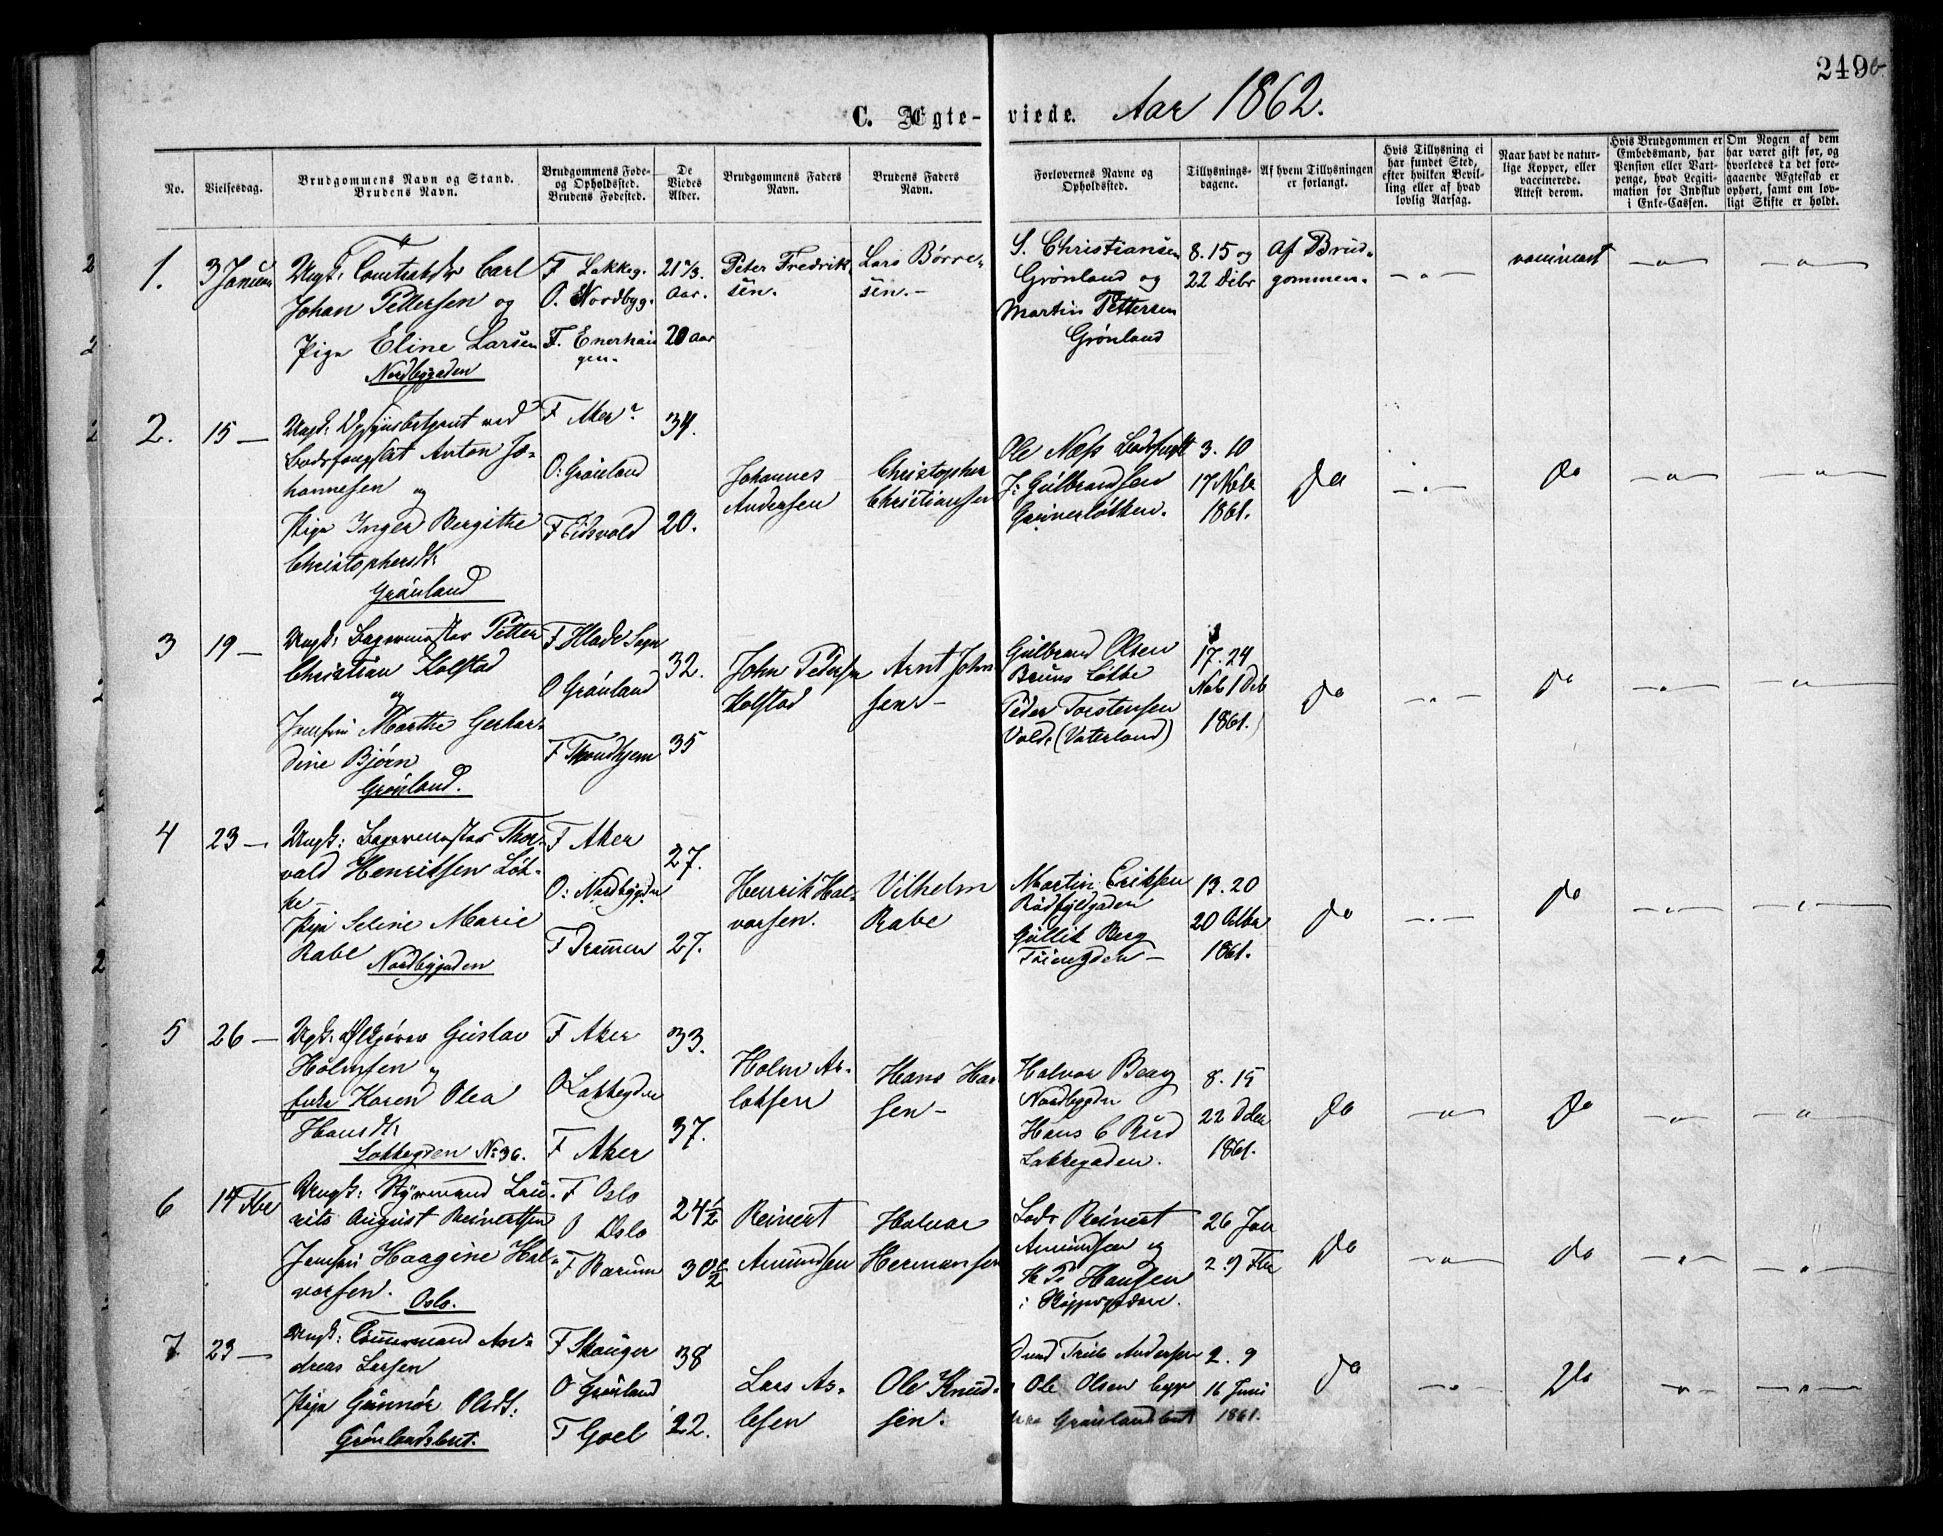 249b
C. Ægte-viede. Aar 1862.
No.
Vielsesdag.
Brudgommens Navn og Stand.
Brudens Navn.
Brudgommens Føde-
og Opholdsted.
Brudens Fødested.
De
Viedes
Alder.
Brudgommens Faders
Navn.
Brudens Faders
Navn.
Forlovernes Navne og
Opholdsted.
Tillysnings-
dagene.
Af hvem Tillysningen
er forlangt.
Hvis Tillysning ei
har fundet Sted,
efter hvilken Bevil-
ling eller af hvad
lovlig Aarsag.
Naar havt de natur-
lige Kopper, eller
vaccinerede.
Attest derom.
Hvis Brudgommen er
Embedsmand, har
Pension eller Vart-
penge, hvad Legiti-
mation for Indskud
i Enke-Cassen.
Om Nogen af dem
har været gift før, og
hvorledes da det fore-
gaaende Ægteskab er
ophørt, samt om lov-
ligt Skifte er holdt.
1.
3 Januar
Ungk: Carl
Johan Pettersen og
Pige Eline Larsen
Nordbygaden
F Lakkeg.
O. Nordbyg.
F. Enerhau
gen.
21
Aar.
20 aar
Peter Fredrik
sen.
Lars Børre-
sen.-
S. Christiansen
Grønland og
Martin Pettersen
Grønland
8. 15 og
22 Debr
Af Brud-
gommen.
- " -
vaccineret
- " -
- " -
2.
15 -
Ungk: ved
Anton Jo-
hannesen og
Pige Inger Bergithe
Christophersdt:
Grønland
F Aker
O: Grønland
F Eidsvold
34.
20.
Johannes
Andersen
Christopher
Christiansen
Ole Næss
J: Gulbrandsen
Grünerløkken.
3. 10
17 Nvbr
1861.
Do
- " -
Do
- " -
- " -
3
19 -
Ungk: Bagermester Petter
Christian Kolstad
og
Jomfru Marthe Gerhar-
dine Bjørn
Grønland.
F Hlade Sogn
O Grønland
F Throndhjem
32.
35
John Pedersen
Kolstad
Arnt John
sen -
Gulbrand Olsen
Bruns Løkke
Peder Torstensen
Vold, (Vaterland)
17. 24
Nvb 1 Deb
1861.
Do
- " -
Do
- " -
- " -
4
23 -
Ungk: Bagermester Thor-
vald Henriksen Løk-
ke -
Pige Seline Marie
Rabe
Nordbygaden
F Aker
O: Nordbygden
F Dramen
27.
27.
Henrik Hal-
vorsen.
Vilhelm
Rabe
Martin Eriksen
Rødfyldgaden
Gullik Berg
Tøiengden -
13. 20
20 Octbr
1861.
Do
- " -
Do
- " -
- " -
5
26 -
Ugk: Gustav
Holmsen og
Enke Karen Olea
Hansdt:
Lakkegden No 36.
F Aker
O Lakkegden
F Aker
33.
37.
Holm As-
laksen
Hans Han
sen -
Halvor Berg
Nordbygden
Hans C Rud
Lakkegaden.
8. 15
22 Debr
1861.
Do
- " -
Do
- " -
"
6
14 Fbr
Ungk: Styrmand Lau-
rits August Reinertsen
Jomfru Haagine Hal-
vorsen.
Oslo.
F Oslo
O Oslo
F Bærum
24 1/2
30 1/2
Reinert
Amundsen
Halvor
Hermansen
Lods Reinert
Amundsen og
Hansen
i
26 Jan
2. 9 Fbr
Do
- " -
Do
- " -
- " -
7
23 -
Ungk: Tømmermand An-
dreas Larsen
Pige Gunnør Olsdt:
Grønlandsleret.
F Skouger
O Grønland
F Goel
38
22.
Lars As-
lesen
Ole Knud-
sen.
Andersen
Ole Olsen
Grønlandsleret
2. 9
16 Juni
1861.
Do
- " -
Do
- " -
- " -